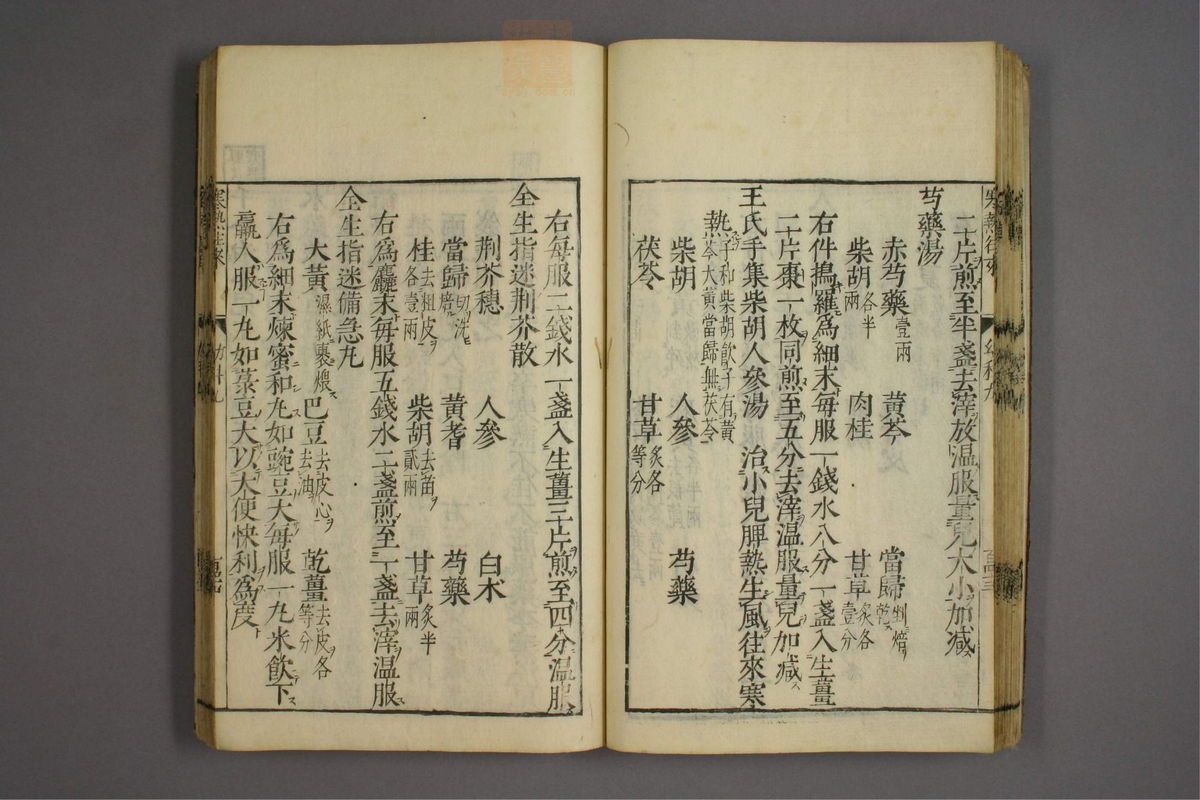 二十片煎至半盞去滓放温服量兒大小加减
芍藥湯
赤芍藥壹兩 黄芩 當歸剉焙乾
柴胡各半兩 肉桂 甘草炙各壹分
右件搗羅爲細末每服一錢水八分一盞入生薑
二片棗一枚同煎至五分去滓温服量兒加减
王氏手集柴胡人參湯 治小兒脾熱生風往來寒
熱子和柴胡飲子有黄芩大黄當歸無茯苓
柴胡 人參 芍藥
茯苓 甘草炙各等分
右每服二錢水一盞入生薑三片煎至四分温服
全生指迷荆芥散
荆芥穗 人參 白术
當歸切洗焙 黄耆 芍藥
桂去粗皮各壹兩 柴胡去苗貳兩 甘草炙半兩
右爲麤末每服五錢水二盞煎至一盞去滓温服
全生指迷備急丸
大黄濕紙裹煨 巴豆去皮心去油 乾薑去皮各等分
右爲細末煉蜜和丸如豌豆大每服一丸米飲下
羸人服一丸如菉豆大以大便快利爲度